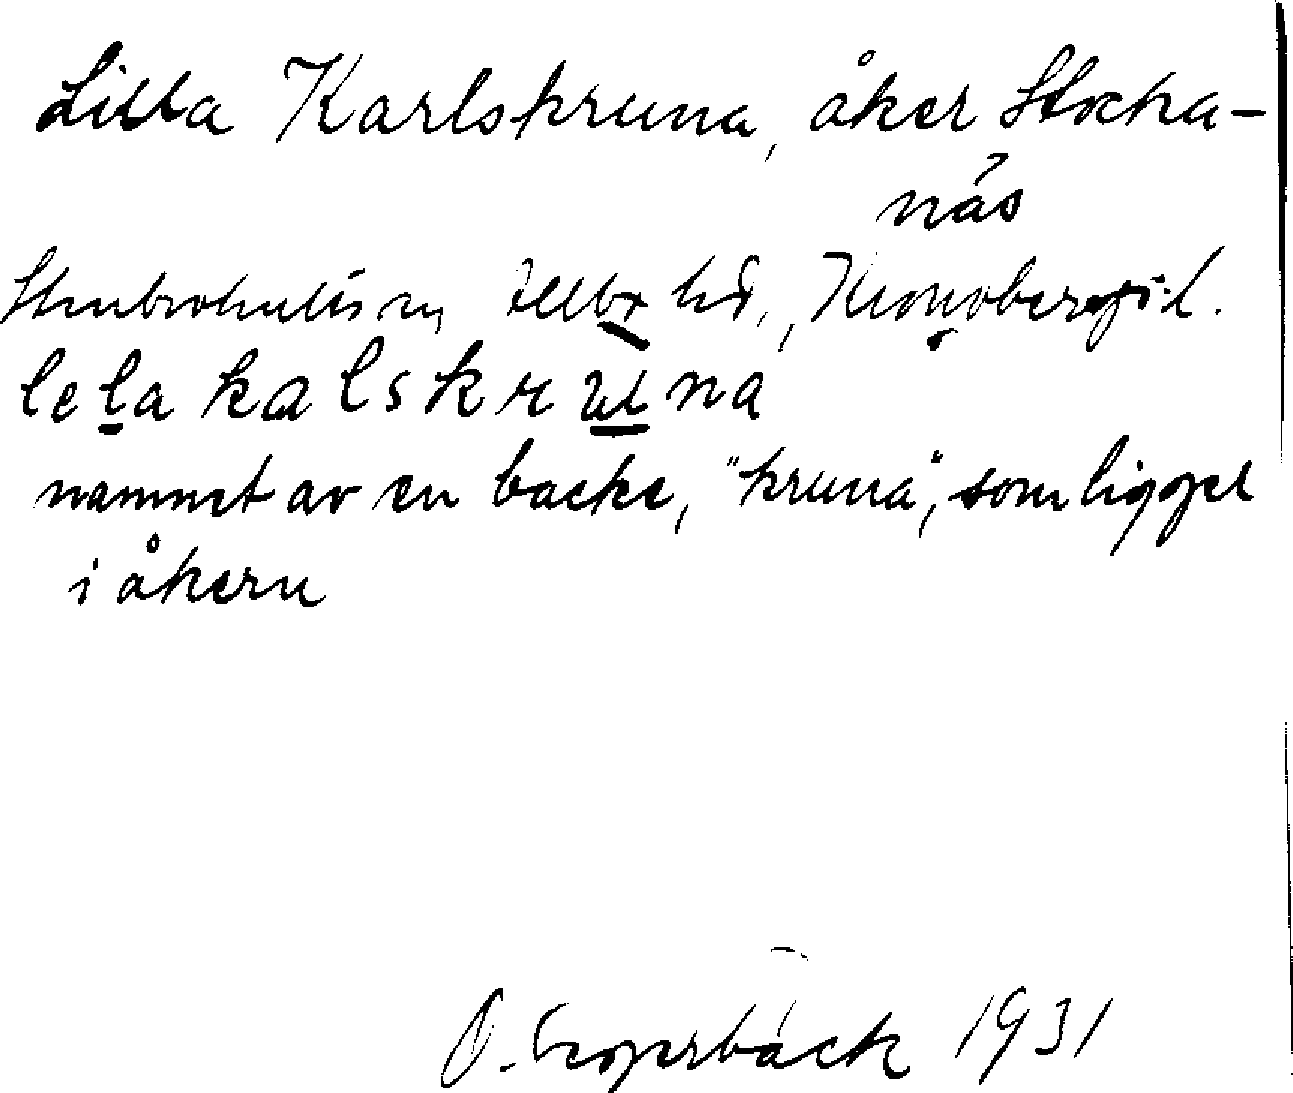 Lilla Karlskruna, åker Stocka-
näs
Stenbrohults sn, Allbo hd., Kronobergs l.
lela kalskruna
namnet av en backe, "kruna", som ligger
i åkern
O. Fagerbäck 1931